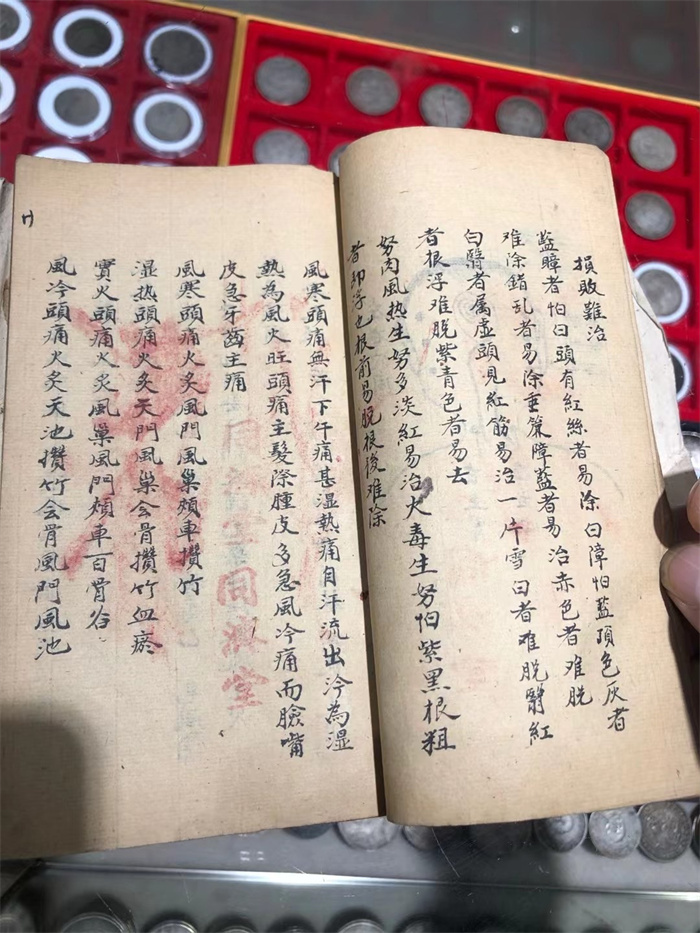 損敗難治
藍瞕者怕白頭有紅絲者易除白障怕藍頂色灰者
难除錯乱者易除垂簾障藍者易治赤色者难脱
白翳者属虚頭見紅筋易治一片雪白者难脱翳紅
者根浮难脱紫青色者易去
努肉風热生努多淡紅易治火毒生努怕紫黑根粗
者即浮也根前易脱根後难除
風寒頭痛無汗下午痛甚湿熱痛自汗流出冷為湿
熱為風火旺頭痛主髮際腫皮多急風冷痛而臉嘴
皮急牙齒主痛
風寒頭痛火炙風門風巢頰車攢竹
湿热頭痛火炙天門風巢会骨攢竹血瘀
實火頭痛火炙風巢風門頰車百骨谷
風冷頭痛火炙天池攢竹会骨風門風池
同濟堂